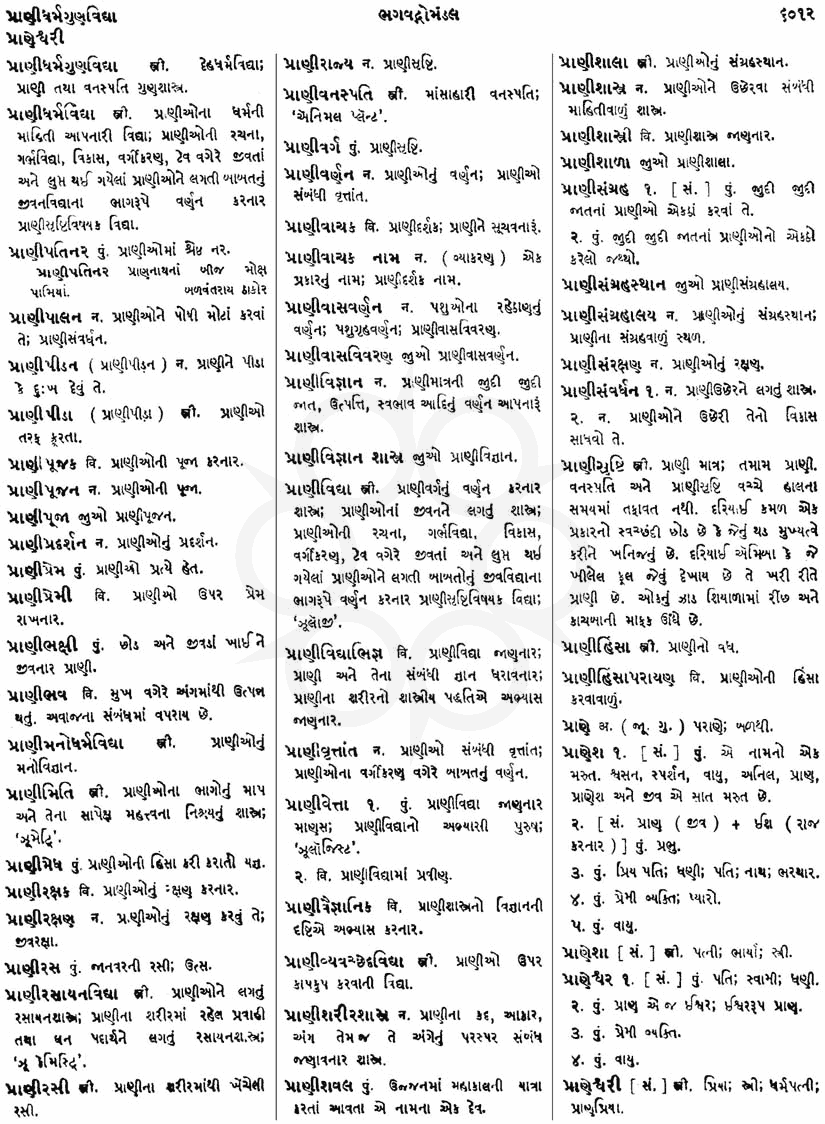 પ્રાણીધર્મગુણવિદ્યા
ભગવદ્ગોમંડલ
૬૦૧૨
પ્રાણેશ્વરી
પ્રાણીધર્મગુણવિદ્યા સ્ત્રી. દેહધર્મવિદ્યા;
પ્રાણી તથા વનસ્પતિ ગુણશાસ્ત્ર.
પ્રાણીધર્મવિદ્યા સ્ત્રી. પ્રાણીઓના ધર્મની
માહિતી આપનારી વિદ્યા; પ્રાણીઓની રચના,
ગર્ભવિદ્યા, વિકાસ, વર્ગીકરણ, ટેવ વગેરે જીવતાં
અને લુપ્ત થઈ ગયેલાં પ્રાણીઓને લગતી બાબતનું
જીવનવિદ્યાના ભાગરૂપે વર્ણન કરનાર
પ્રાણીસૃષ્ટિવિષયક વિદ્યા.
પ્રાણીપતિનર પું. પ્રાણીઓમાં શ્રેષ્ઠ નર.
પ્રાણીપતિનર પ્રાણનાથનાં બીજ મોક્ષ
પામિયાં. બળવંતરાય ઠાકોર
પ્રાણીપાલન ન. પ્રાણીઓને પોષી મોટાં કરવાં
તે; પ્રાણીસંવર્ધન.
પ્રાણીપીડન ( પ્રાણીપીડન ) ન. પ્રાણીને પીડા
કે દુઃખ દેવું તે.
પ્રાણીપીડા ( પ્રાણીપીડા ) સ્ત્રી. પ્રાણીઓ
તરફ ક્રૂરતા.
પ્રાણીપૂજક વિ. પ્રાણીઓની પૂજા કરનાર.
પ્રાણીપૂજન ન. પ્રાણીઓની પૂજા.
પ્રાણીપૂજા જુઓ પ્રાણીપૂજન.
પ્રાણીપ્રદર્શન ન. પ્રાણીઓનું પ્રદર્શન.
પ્રાણીપ્રેમ પું. પ્રાણીઓ પ્રત્યે હેત.
પ્રાણીપ્રેમી વિ. પ્રાણીઓ ઉપર પ્રેમ
રાખનાર.
પ્રાણીભક્ષી પું. છોડ અને જીવડાં ખાઈને
જીવનાર પ્રાણી.
પ્રાણીભવ વિ. મુખ વગેરે અંગમાંથી ઉત્પન્ન
થતું. અવાજના સંબંધમાં વપરાય છે.
પ્રાણીમનોધર્મવિદ્યા સ્ત્રી. પ્રાણીઓનું
મનોવિજ્ઞાન.
પ્રાણીમિતિ સ્ત્રી. પ્રાણીઓના ભાગોનું માપ
અને તેના સાપેક્ષ મહત્ત્વના નિશ્ચયનું શાસ્ત્ર;
‘ઝૂમેટ્રિ’.
પ્રાણીમેધ પું. પ્રાણીઓની હિંસા કરી કરાતો યજ્ઞ.
પ્રાણીરક્ષક વિ. પ્રાણીઓનું રક્ષણ કરનાર.
પ્રાણીરક્ષણ ન. પ્રાણીઓનું રક્ષણ કરવું તે;
જીવરક્ષા.
પ્રાણીરસ પું. જાનવરની રસી; ઉત્સ.
પ્રાણીરસાયનવિદ્યા સ્ત્રી. પ્રાણીઓને લગતું
રસાયનશાસ્ત્ર; પ્રાણીના શરીરમાં રહેલ પ્રવાહી
તથા ઘન પદાર્થને લગતું રસાયનશાસ્ત્ર;
‘ઝૂ કેમિસ્ટ્રિ’.
પ્રાણીરસી સ્ત્રી. પ્રાણીના શરીરમાંથી ખેંચેલી
રસી.
પ્રાણીરાજ્ય ન. પ્રાણીસૃષ્ટિ.
પ્રાણીવનસ્પતિ સ્ત્રી. માંસાહારી વનસ્પતિ;
‘ઍનિમલ પ્લૅન્ટ’.
પ્રાણીવર્ગ પું. પ્રાણીસૃષ્ટિ.
પ્રાણીવર્ણન ન. પ્રાણીઓનું વર્ણન; પ્રાણીઓ
સંબંધી વૃત્તાંત.
પ્રાણીવાચક વિ. પ્રાણીદર્શક; પ્રાણીને સૂચવનારૂં.
પ્રાણીવાચક નામ ન. ( વ્યાકરણ ) એક
પ્રકારનું નામ; પ્રાણીદર્શક નામ.
પ્રાણીવાસવર્ણન ન. પશુઓના રહેઠાણનું
વર્ણન; પશુગૃહવર્ણન; પ્રાણીવાસવિવરણ.
પ્રાણીવાસવિવરણ જુઓ પ્રાણીવાસવર્ણન.
પ્રાણીવિજ્ઞાન ન. પ્રાણીમાત્રની જુદી જુદી
જાત, ઉત્પત્તિ, સ્વભાવ આદિનું વર્ણન આપનારૂં
શાસ્ત્ર.
પ્રાણીવિજ્ઞાન શાસ્ત્ર જુઓ પ્રાણીવિજ્ઞાન.
પ્રાણીવિદ્યા સ્ત્રી. પ્રાણીવર્ગનું વર્ણન કરનાર
શાસ્ત્ર; પ્રાણીઓનાં જીવનને લગતું શાસ્ત્ર;
પ્રાણીઓની રચના, ગર્ભવિદ્યા, વિકાસ,
વર્ગીકરણ, ટેવ વગેરે જીવતાં અને લુપ્ત થઈ
ગયેલાં પ્રાણીઓને લગતી બાબતોનું જીવવિદ્યાના
ભાગરૂપે વર્ણન કરનાર પ્રાણીસૃષ્ટિવિષયક વિદ્યા;
‘ઝૂલૉજી’.
પ્રાણીવિદ્યાભિજ્ઞ વિ. પ્રાણીવિદ્યા જાણનાર;
પ્રાણી અને તેના સંબંધી જ્ઞાન ધરાવનાર;
પ્રાણીના શરીરનો શાસ્ત્રીય પદ્ધતિએ અભ્યાસ
જાણનાર.
પ્રાણીવૃત્તાંત ન. પ્રાણીઓ સંબંધી વૃત્તાંત;
પ્રાણીઓના વર્ગીકરણ વગેરે બાબતનું વર્ણન.
પ્રાણીવેત્તા ૧. પું. પ્રાણીવિદ્યા જાણનાર
માણસ; પ્રાણીવિદ્યાનો અભ્યાસી પુરુષ;
‘ઝૂલૉજિસ્ટ’.
૨. વિ. પ્રાણીવિદ્યામાં પ્રવીણ.
પ્રાણીવૈજ્ઞાનિક વિ. પ્રાણીશાસ્ત્રનો વિજ્ઞાનની
દૃષ્ટિએ અભ્યાસ કરનાર.
પ્રાણીવ્યવચ્છેદવિદ્યા સ્ત્રી. પ્રાણીઓ ઉપર
કાપકુપ કરવાની વિદ્યા.
પ્રાણીશરીરશાસ્ત્ર ન. પ્રાણીના કદ, આકાર,
અંગ તેમજ તે અંગેનું પરસ્પર સંબંધ
જણાવનાર શાસ્ત્ર.
પ્રાણીશવલ પું. ઉજ્જનમાં મહાકાલની યાત્રા
કરતાં આવતા એ નામના એક દેવ.
પ્રાણીશાલા સ્ત્રી. પ્રાણીઓનું સંગ્રહસ્થાન.
પ્રાણીશાસ્ત્ર ન. પ્રાણીઓને ઉછેરવા સંબંધી
માહિતીવાળું શાસ્ત્ર.
પ્રાણીશાસ્ત્રી વિ. પ્રાણીશાસ્ત્ર જાણનાર.
પ્રાણીશાળા જુઓ પ્રાણીશાલા.
પ્રાણીસંગ્રહ ૧. [ સં. ] પું. જુદી જુદી
જાતનાં પ્રાણીઓ એકઠાં કરવાં તે.
૨. પું. જુદી જુદી જાતનાં પ્રાણીઓનો એકઠો
કરેલો જથ્થો.
પ્રાણીસંગ્રહસ્થાન જુઓ પ્રાણીસંગ્રહાલય.
પ્રાણીસંગ્રહાલય ન. પ્રાણીઓનું સંગ્રહસ્થાન;
પ્રાણીના સંગ્રહવાળું સ્થળ.
પ્રાણીસંરક્ષણ ન. પ્રાણીઓનું રક્ષણ.
પ્રાણીસંવર્ધન ૧. ન. પ્રાણીઉછેરને લગતું શાસ્ત્ર.
૨. ન. પ્રાણીઓને ઉછેરી તેનો વિકાસ
સાધવો તે.
પ્રાણીસૃષ્ટિ સ્ત્રી. પ્રાણી માત્ર; તમામ પ્રાણી.
વનસ્પતિ અને પ્રાણીસૃષ્ટિ વચ્ચે હાલના
સમયમાં તફાવત નથી. દરિયાઈ કમળ એક
પ્રકારનો સ્વચ્છંદી છોડ છે કે જેનું થડ મુખ્યત્વે
કરીને ખનિજનું છે. દરિયાઈ એમિબા કે જે
ખીલેલ ફૂલ જેવું દેખાય છે તે ખરી રીતે
પ્રાણી છે. ઓકનું ઝાડ શિયાળામાં રીંછ અને
કાચબાની માફક ઊંઘે છે.
પ્રાણીહિંસા સ્ત્રી. પ્રાણીનો વધ.
પ્રાણીહિંસાપરાયણ વિ. પ્રાણીઓની હિંસા
કરવાવાળું.
પ્રાણે અ. ( જૂ. ગુ. ) પરાણે; બળથી.
પ્રાણેશ ૧. [ સં. ] પું. એ નામનો એક
મરુત. શ્વસન, સ્પર્શન, વાયુ, અનિલ, પ્રાણ,
પ્રાણેશ અને જીવ એ સાત મરુત છે.
૨. [ સં. પ્રાણ ( જીવ ) + ઈશ ( રાજ
કરનાર ) ] પું. પ્રભુ.
૩. પું. પ્રિય પતિ; ધણી; પતિ; નાથ; ભરથાર.
૪. પું. પ્રેમી વ્યક્તિ; પ્યારો.
૫. પું. વાયુ.
પ્રાણેશા [ સં. ] સ્ત્રી. પત્ની; ભાર્યા; સ્ત્રી.
પ્રાણેશ્વર ૧. [ સં. ] પું. પતિ; સ્વામી; ધણી.
૨. પું. પ્રાણ એ જ ઈશ્વર; ઈશ્વરરૂપ પ્રાણ.
૩. પું. પ્રેમી વ્યક્તિ.
૪. પું. વાયુ.
પ્રાણેશ્વરી [ સં. ] સ્ત્રી. પ્રિયા; સ્ત્રી; ધર્મપત્ની;
પ્રાણપ્રિયા.